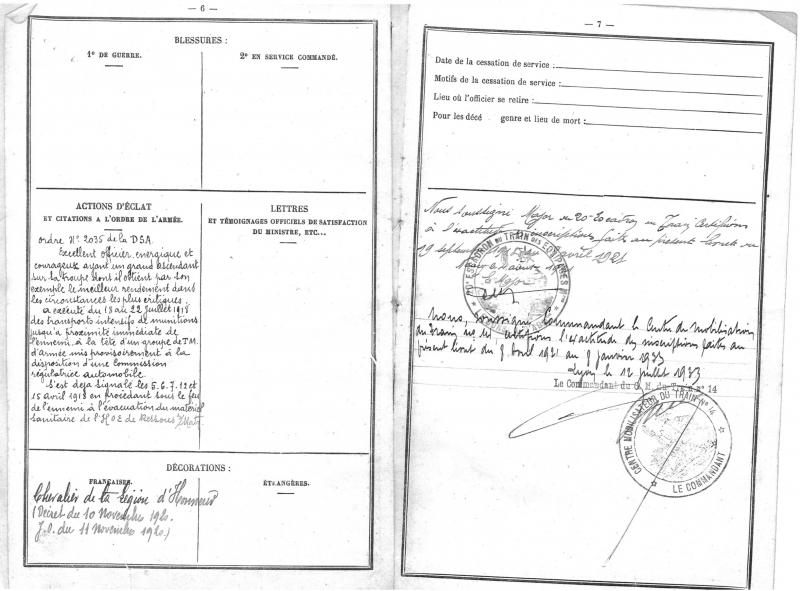 — 6 —
BLESSURES :
1º DE GUERRE.
2º EN SERVICE COMMANDÉ.
ACTIONS D'ÉCLAT
ET CITATIONS A L'ORDRE DE L'ARMÉE.
ordre Nº 2035 de la DSA.
Excellent officier, énergique et
courageux ayant un grand ascendant
sur la troupe dont il obtient par son
exemple le meilleur rendement dans
les circonstances les plus critiques.
a exécuté du 18 au 22 Juillet 1918
des transports intensifs de munitions
jusqu'à proximité immédiate de
l'ennemi à la tête d'un groupe de T.M.
d'armée mis provisoirement à la
disposition d'une commission
régulatrice automobile.
S'est déjà signalé les 5.6.7.12 et
15 avril 1918 en procédant sous le feu
de l'ennemi à l'évacuation du matériel
sanitaire de l'HOE de Ressons s/Matz
LETTRES
ET TÉMOIGNAGES OFFICIELS DE SATISFACTION
DU MINISTRE, ETC...
DÉCORATIONS :
FRANÇAISES.
ÉTRANGÈRES.
Chevalier de la Légion d'Honneur
(Décret du 10 Novembre 1920.
J.O. du 11 Novembre 1920.)
— 7 —
Date de la cessation de service :
Motifs de la cessation de service :
Lieu où l'officier se retire :
Pour les décé genre et lieu de mort :
Nous soussigné Major du 20e Escadron du Train Certifions
à l'exactitude inscriptions faites au présent livret du
19 septembre avril 1921
Le Major
ESCADRON DU TRAIN DES ÉQUIPAGES
Nous, soussigné, Commandant le Centre de Mobilisation
du Train nº 14, certifions l'exactitude des inscriptions faites au
présent livret du 9 Avril 1921 au 9 Janvier 1933
Lyon, le 12 juillet 1933
Le Commandant du C. M. du Train nº 14
CENTRE MOBILISATEUR DU TRAIN Nº 14
LE COMMANDANT